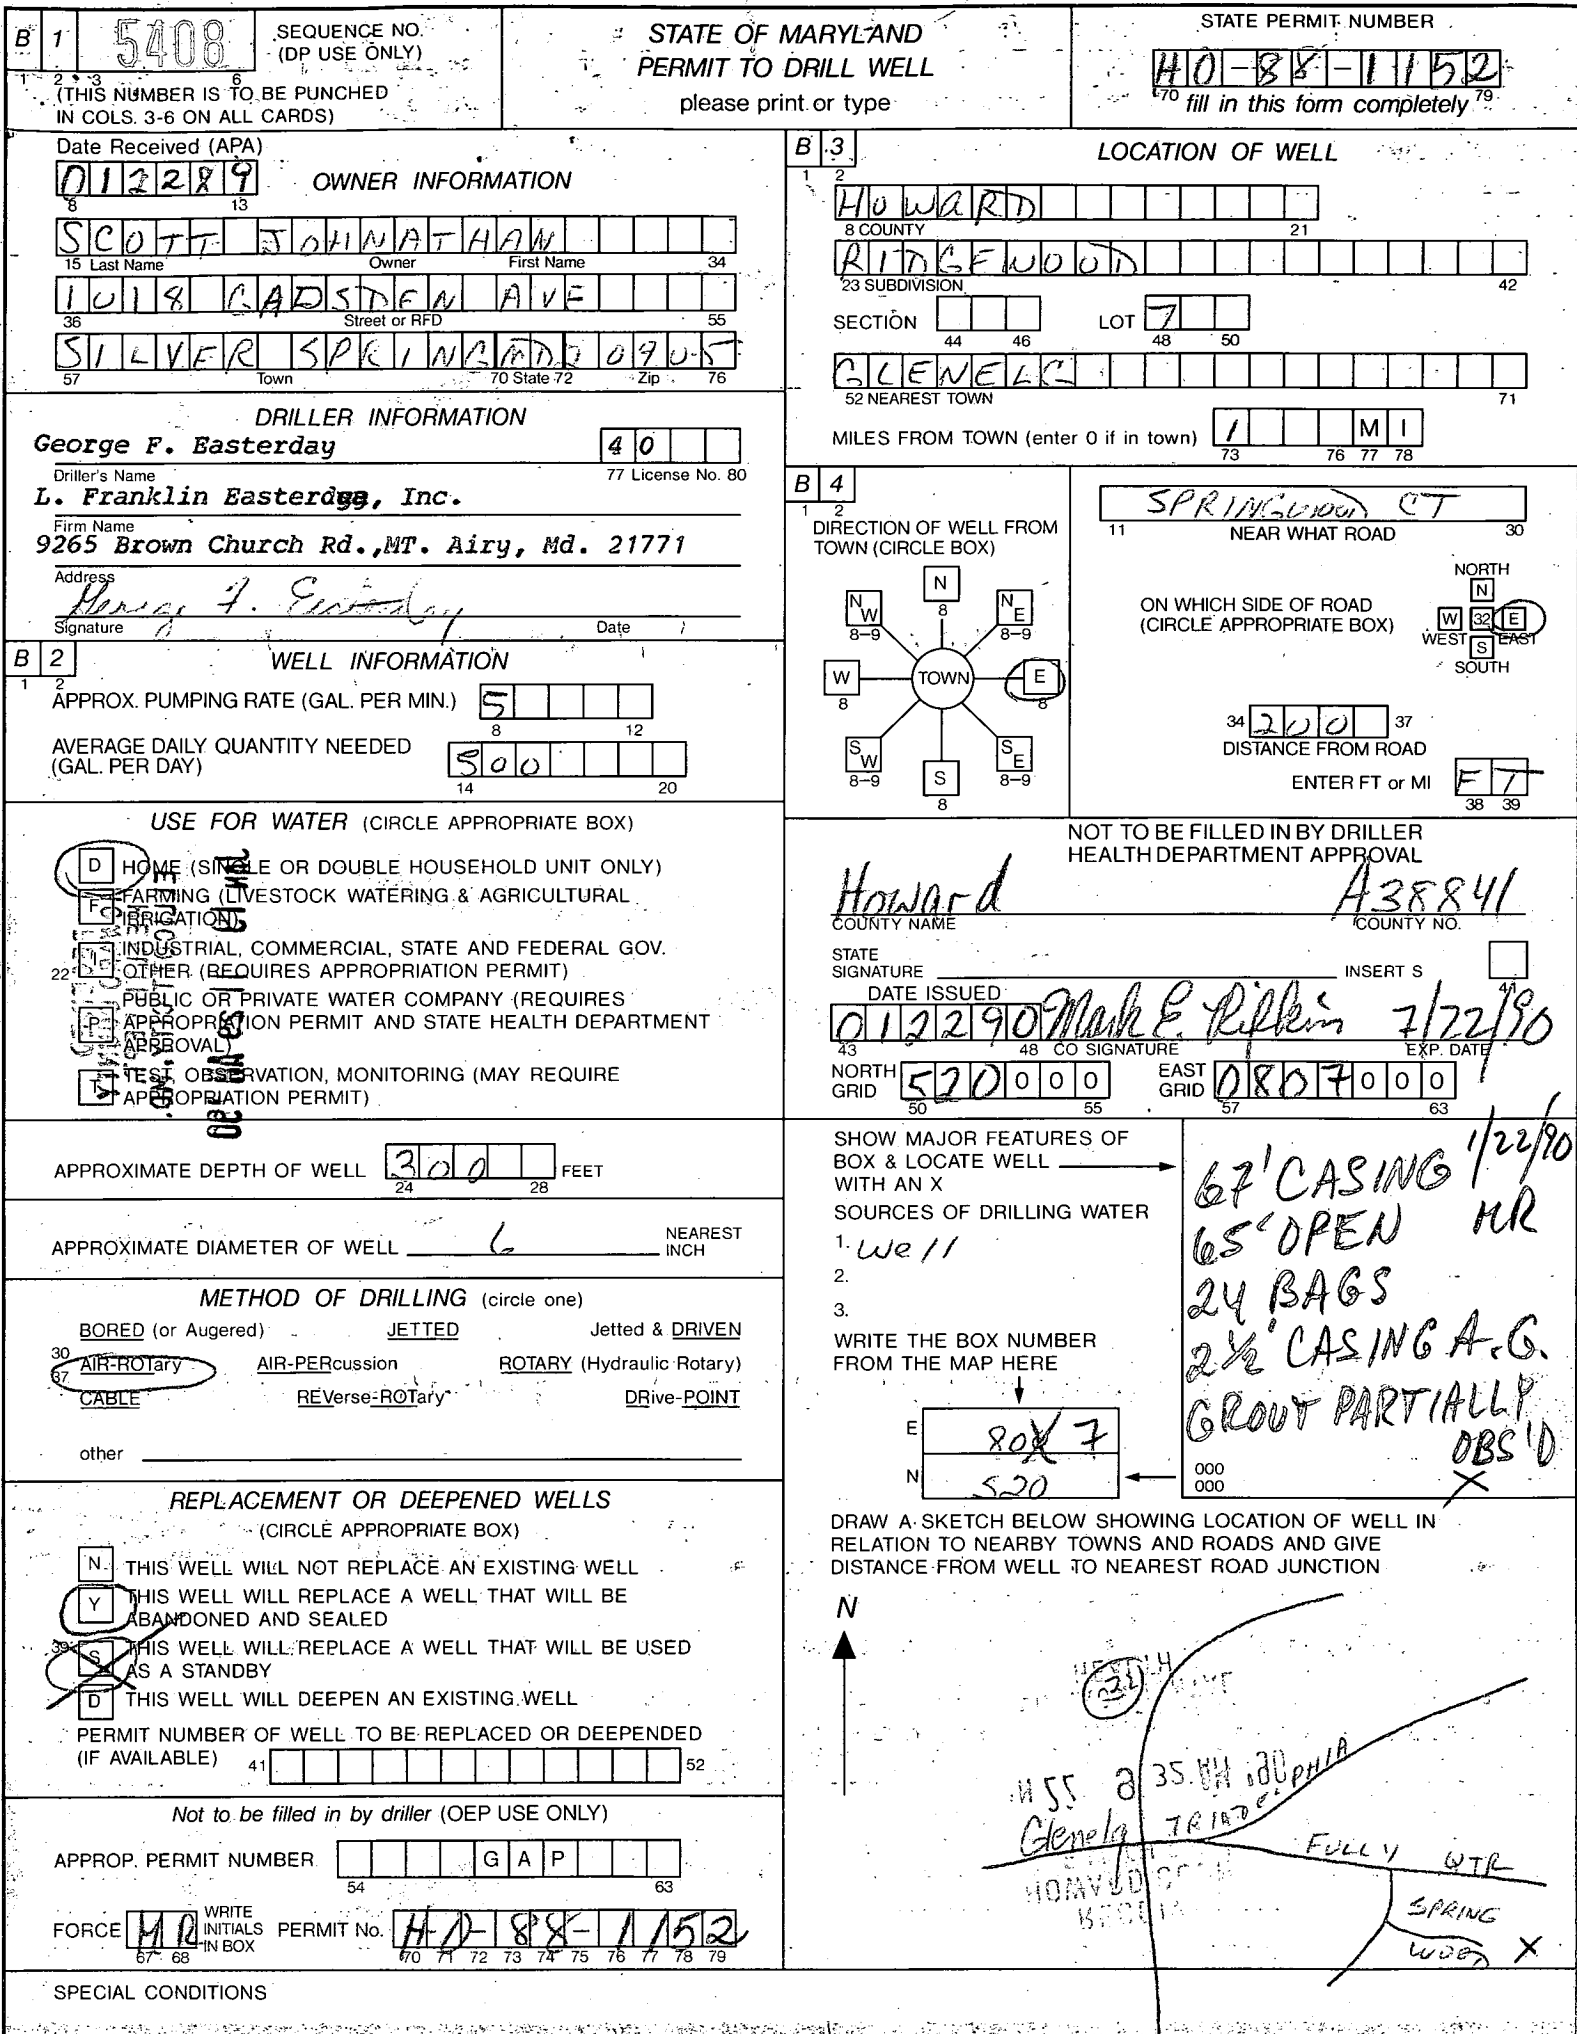 B 1 5408 SEQUENCE NO. (DP USE ONLY)
1 2 3 6
(THIS NUMBER IS TO BE PUNCHED
IN COLS. 3-6 ON ALL CARDS)
STATE OF MARYLAND
PERMIT TO DRILL WELL
please print or type
STATE PERMIT NUMBER
HO-88-1152
70 fill in this form completely 79
Date Received (APA)
012289
8 13
OWNER INFORMATION
SCOTT JOHNATHAN
15 Last Name Owner First Name 34
1018 GADSDEN AVE
36 Street or RFD 55
SILVER SPRING MD 20905
57 Town 70 State 72 Zip 76
DRILLER INFORMATION
George F. Easterday 40
Driller's Name 77 License No. 80
L. Franklin Easterday, Inc.
Firm Name
9265 Brown Church Rd., MT. Airy, Md. 21771
Address
George F. Easterday
Signature Date
B 2 WELL INFORMATION
1 2
APPROX. PUMPING RATE (GAL. PER MIN.) 5
8 12
AVERAGE DAILY QUANTITY NEEDED
(GAL. PER DAY) 500
14 20
USE FOR WATER (CIRCLE APPROPRIATE BOX)
D HOME (SINGLE OR DOUBLE HOUSEHOLD UNIT ONLY)
F FARMING (LIVESTOCK WATERING & AGRICULTURAL
IRRIGATION)
22 I INDUSTRIAL, COMMERCIAL, STATE AND FEDERAL GOV.
OTHER (REQUIRES APPROPRIATION PERMIT)
P PUBLIC OR PRIVATE WATER COMPANY (REQUIRES
APPROPRIATION PERMIT AND STATE HEALTH DEPARTMENT
APPROVAL)
T TEST, OBSERVATION, MONITORING (MAY REQUIRE
APPROPRIATION PERMIT)
APPROXIMATE DEPTH OF WELL 300 FEET
24 28
APPROXIMATE DIAMETER OF WELL 6 NEAREST INCH
METHOD OF DRILLING (circle one)
BORED (or Augered) JETTED Jetted & DRIVEN
30
37 AIR-ROTary AIR-PERcussion ROTARY (Hydraulic Rotary)
CABLE REVerse-ROTary DRive-POINT
other
REPLACEMENT OR DEEPENED WELLS
(CIRCLE APPROPRIATE BOX)
N THIS WELL WILL NOT REPLACE AN EXISTING WELL
Y THIS WELL WILL REPLACE A WELL THAT WILL BE
ABANDONED AND SEALED
39 S THIS WELL WILL REPLACE A WELL THAT WILL BE USED
AS A STANDBY
D THIS WELL WILL DEEPEN AN EXISTING WELL
PERMIT NUMBER OF WELL TO BE REPLACED OR DEEPENDED
(IF AVAILABLE) 41 52
Not to be filled in by driller (OEP USE ONLY)
APPROP. PERMIT NUMBER G A P
54 63
FORCE MR WRITE INITIALS IN BOX PERMIT No. HO-88-1152
67 68 70 71 72 73 74 75 76 77 78 79
SPECIAL CONDITIONS
B 3 LOCATION OF WELL
1 2
HOWARD
8 COUNTY 21
RIDGEWOOD
23 SUBDIVISION 42
SECTION LOT 7
44 46 48 50
GLENELG
52 NEAREST TOWN 71
MILES FROM TOWN (enter 0 if in town) 1 M I
73 76 77 78
B 4
1 2
DIRECTION OF WELL FROM
TOWN (CIRCLE BOX)
N
8
NW NE
8-9 8-9
W TOWN E
8 8
SW SE
8-9 8-9
S
8
SPRINGWOOD CT
11 NEAR WHAT ROAD 30
ON WHICH SIDE OF ROAD
(CIRCLE APPROPRIATE BOX)
NORTH
N
W 32 E
WEST EAST
S
SOUTH
34 200 37
DISTANCE FROM ROAD
ENTER FT or MI FT
38 39
NOT TO BE FILLED IN BY DRILLER
HEALTH DEPARTMENT APPROVAL
Howard A38841
COUNTY NAME COUNTY NO.
STATE
SIGNATURE INSERT S
41
DATE ISSUED
012290 Mark E. Rifkin 7/22/90
43 48 CO SIGNATURE EXP. DATE
NORTH GRID 520000 EAST GRID 0807000
50 55 57 63
SHOW MAJOR FEATURES OF
BOX & LOCATE WELL
WITH AN X
SOURCES OF DRILLING WATER
1. Well
2.
3.
WRITE THE BOX NUMBER
FROM THE MAP HERE
E 807
N 520
67' CASING 1/22/90
65' OPEN MR
24 BAGS
2½' CASING A.G.
GROUT PARTIALLY
OBS'D
000
000 X
DRAW A SKETCH BELOW SHOWING LOCATION OF WELL IN
RELATION TO NEARBY TOWNS AND ROADS AND GIVE
DISTANCE FROM WELL TO NEAREST ROAD JUNCTION
N
32
Glenelg TRIADELPHIA
FULLY WTR
SPRING
WOOD X